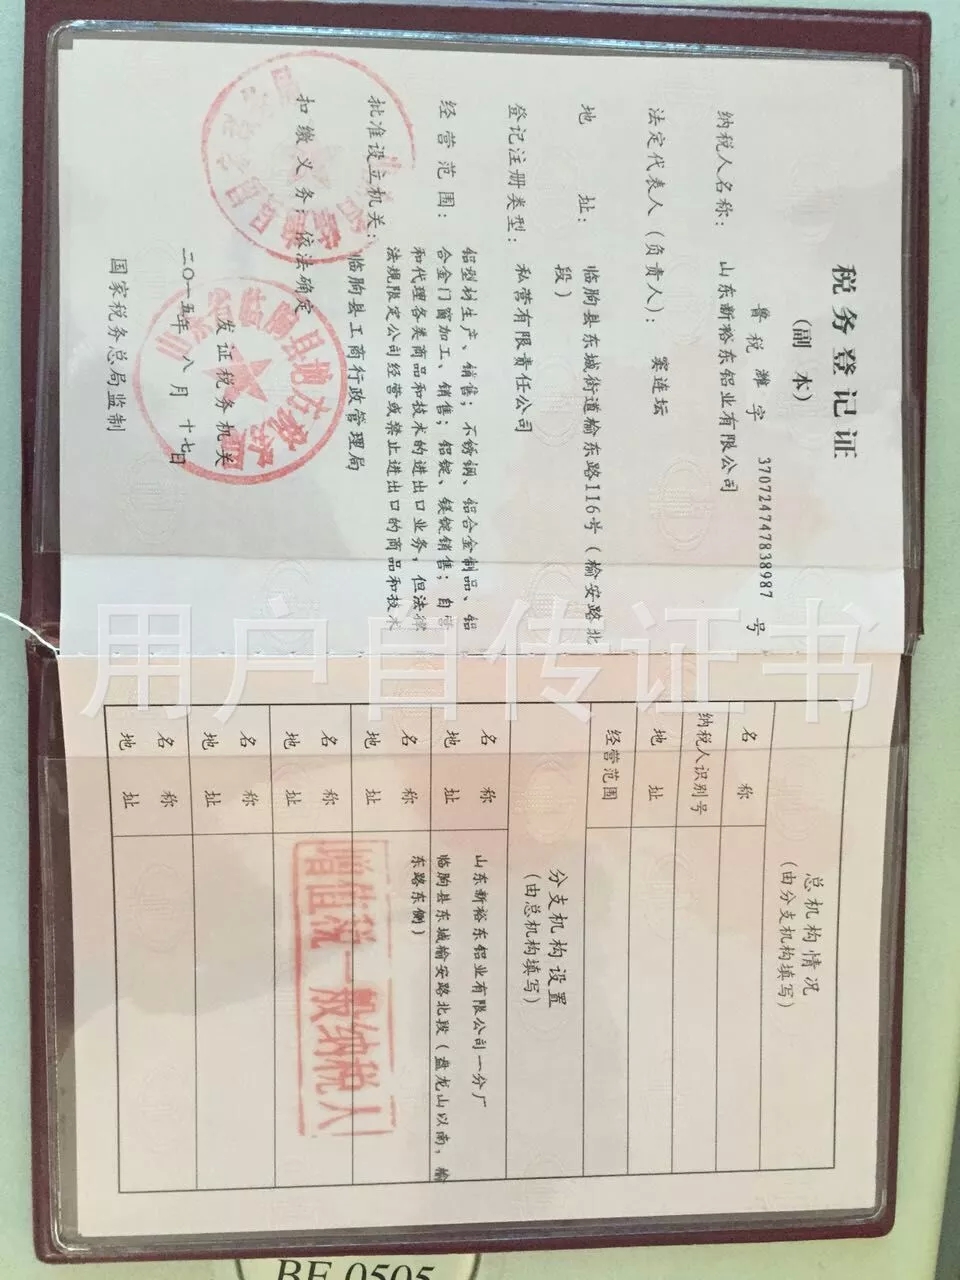 税务登记证
（副本）
鲁税潍字 370724747838987 号
纳税人名称： 山东新裕东铝业有限公司
法定代表人（负责人）： 窦连坛
地 址： 临朐县东城街道榆东路116号（榆安路北
段）
登记注册类型： 私营有限责任公司
经营范围： 铝型材生产、销售；不锈钢、铝合金制品、铝
合金门窗加工、销售；铝锭、镁锭销售；自营
和代理各类商品和技术的进出口业务，但法律
法规限定公司经营或禁止进出口的商品和技术
批准设立机关： 临朐县工商行政管理局
扣缴义务： 依法确定
发证税务机关
二〇一五年 八月 十七日
国家税务总局监制
总机构情况
（由分支机构填写）
名 称
纳税人识别号
地 址
经营范围
分支机构设置
（由总机构填写）
名 称 山东新裕东铝业有限公司一分厂
地 址 临朐县东城榆安路北段（盘龙山以南，榆
东路东侧）
名 称
地 址
名 称
地 址
名 称
地 址
名 称
地 址
增值税一般纳税人
用户自传证书
BF 0505